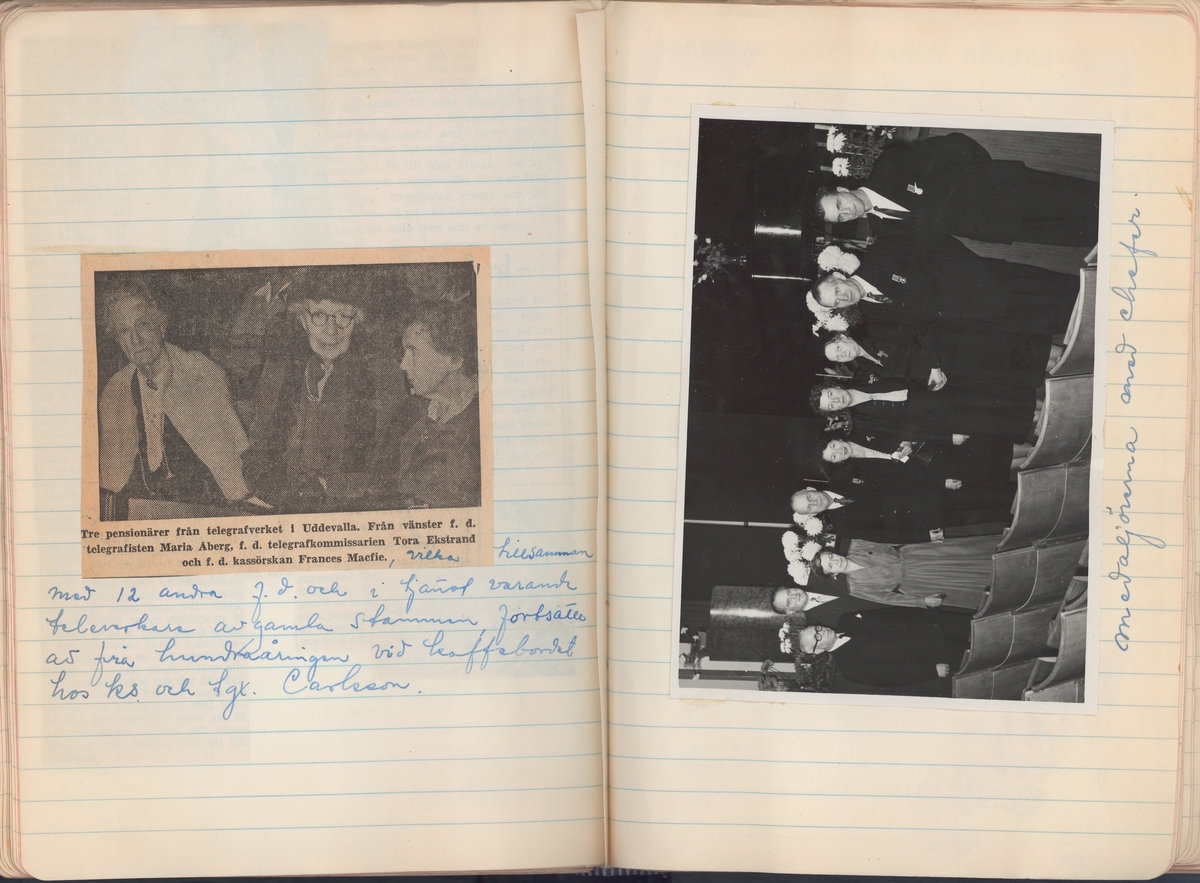 Tre pensionärer från telegrafverket i Uddevalla. Från vänster f. d.
telegrafisten Maria Aberg, f. d. telegrafkommissarien Tora Ekstrand
och f. d. kassörskan Frances Macfie., vilka tillsamman
med 12 andra f. d. och i tjänst varande
televerkare av gamla stammen, fortsätter
av fira hundraåringen vid kaffebordet
hos ks. och tgx. Carlsson.
medaljörerna med chefer.